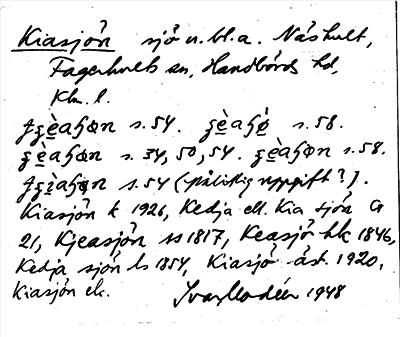 Kiasjön sjö n. bl. a. Näshult,
Fagerhults sn, Handbörds hd,
Klm. l.
s. 54. s. 58.
s. 34, 50, 54. s. 58.
s. 54 (pålitlig uppgift?).
Kiasjön k 1926, Kedja ell. Kia sjön G
21, Kjeasjön ss 1817, Keasjö hk 1846,
Kedja sjön ls 1854, Kiasjö åst. 1920,
Kiasjön ek. Ivar Modéer 1948